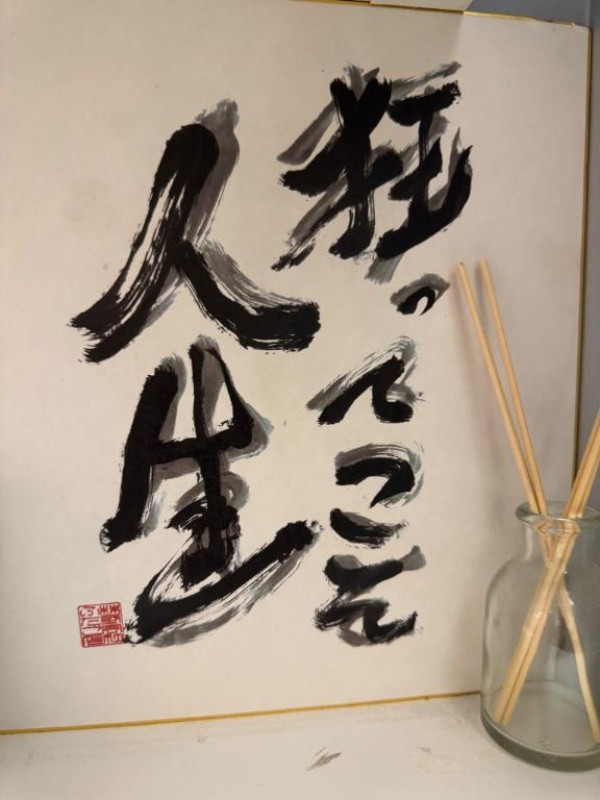 狂ってこそ
人生